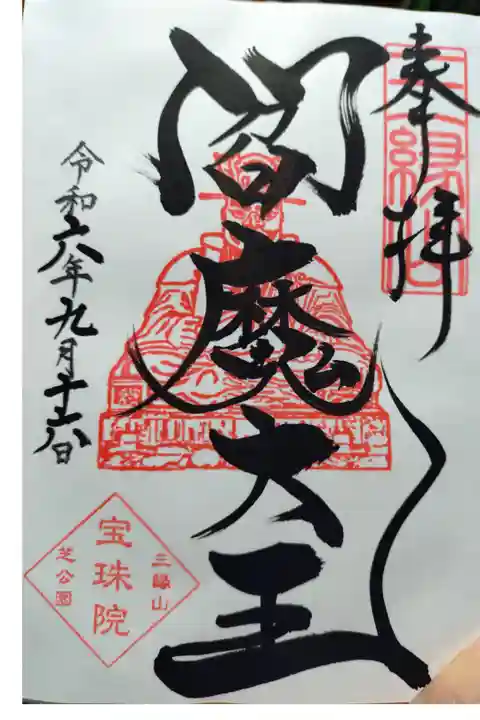 奉拝
三縁山
閻魔大王
令和六年九月十六日
三縁山
宝珠院
芝公園